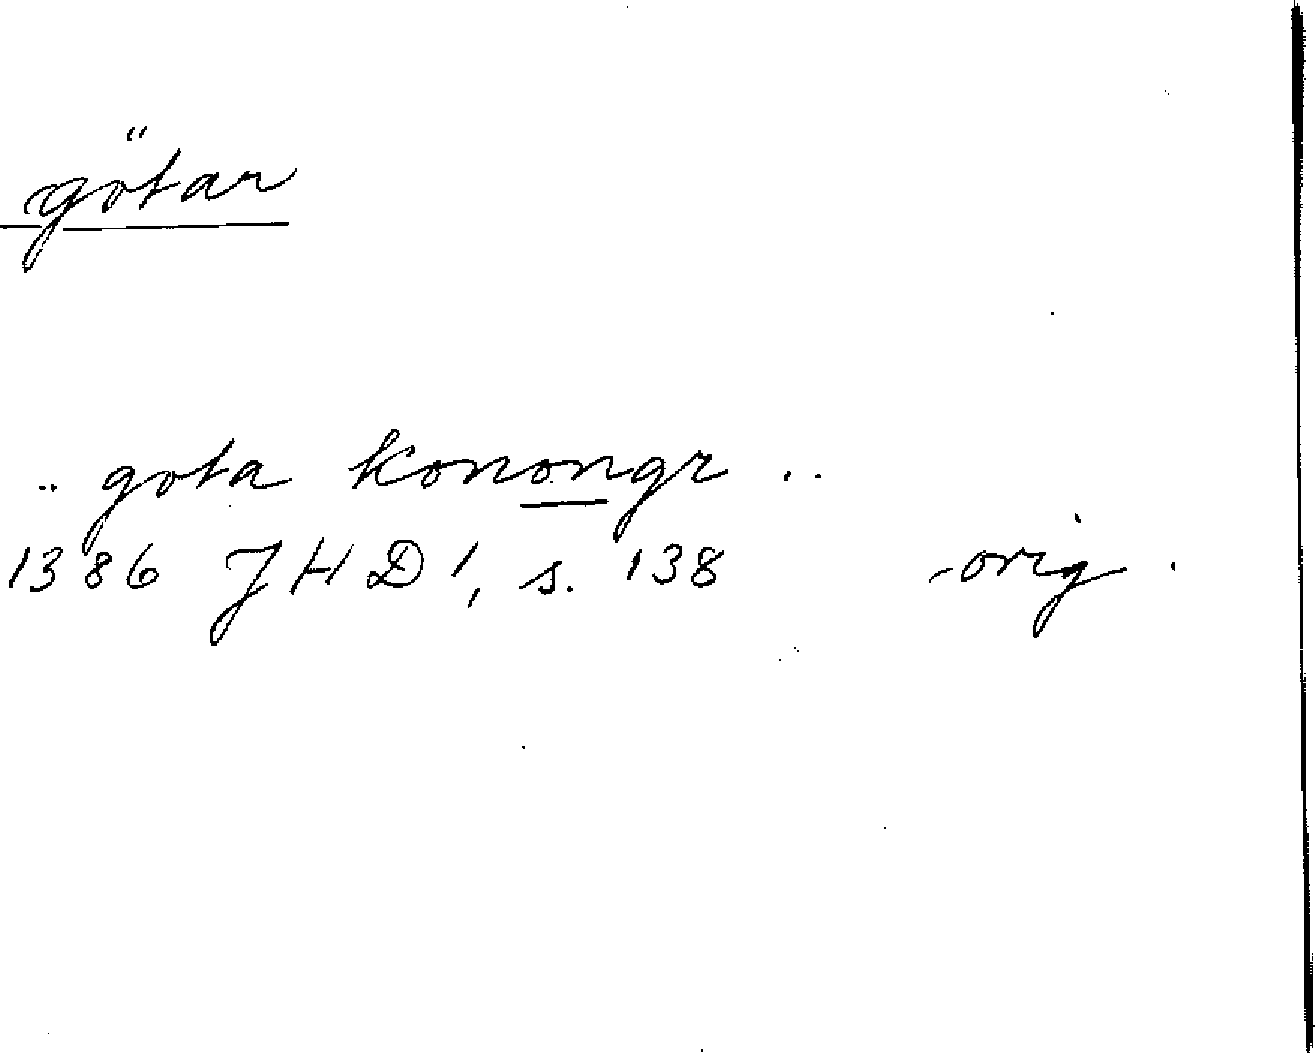 götar
.. gota konongr ..
1386 JHD 1, s. 138 orig.